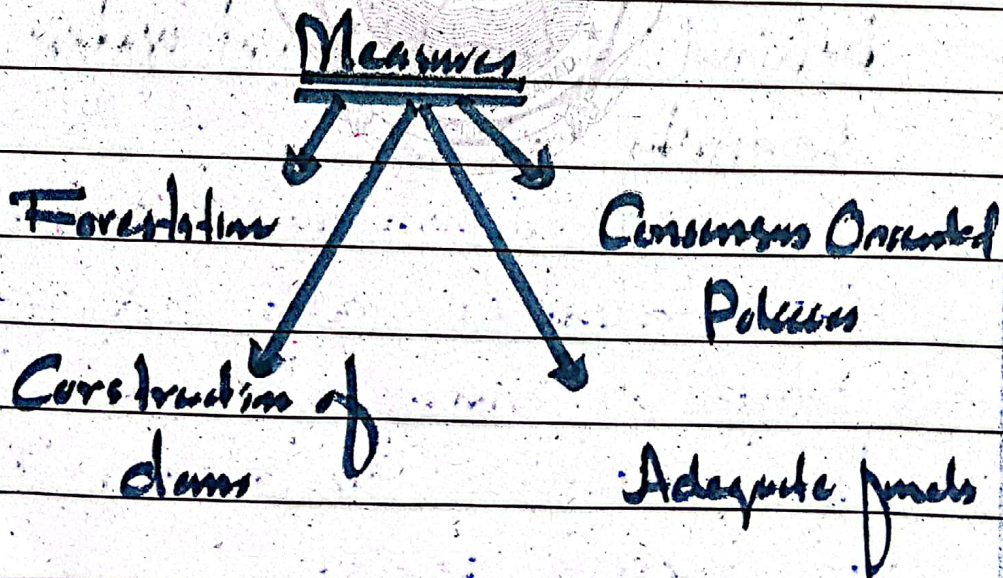 Measures
Forestation
Consensus Oriented
Policies
Construction of
dams
Adequate funds